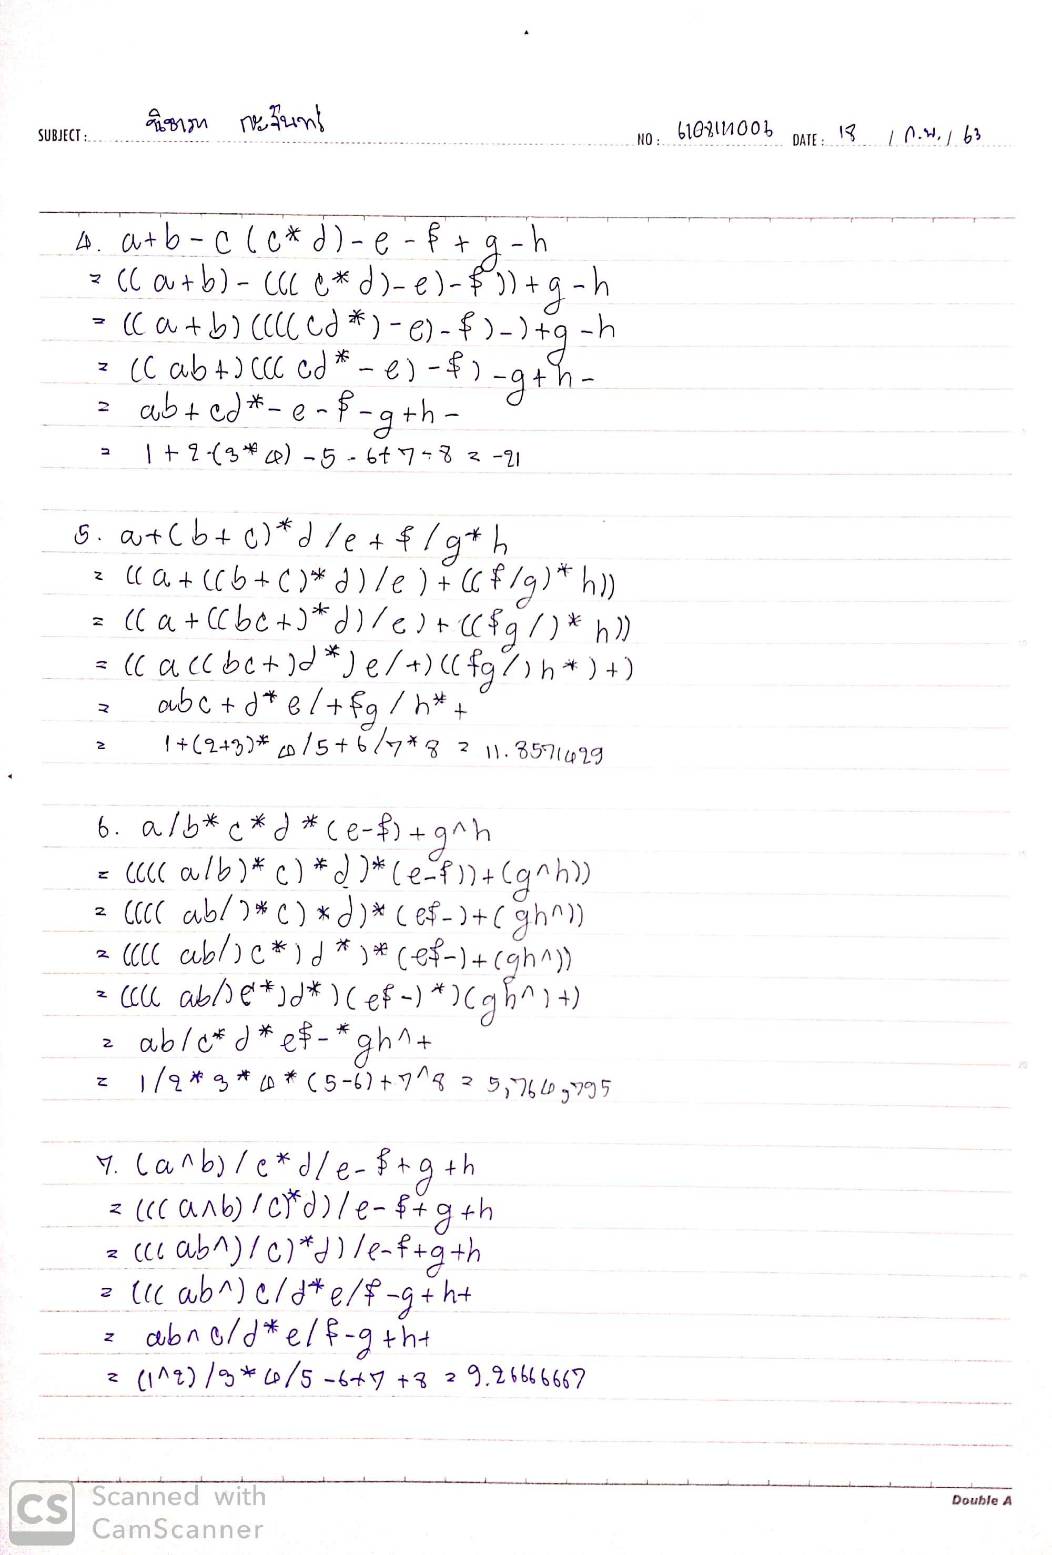 SUBJECT :
NO : DATE : 18 / ก.พ. / 63
4. a+b-c(c*d)-e-f+g-h
= ((a+b)-(((c*d)-e)-f))+g-h
= ((a+b)((((cd*)-e)-f)-)+g-h
= ((ab+)(((cd*-e)-f)-g+h-
= ab+cd*-e-f-g+h-
= 1+2-(3*4)-5-6+7-8 = -21
5. a+(b+c)*d/e+f/g*h
= ((a+((b+c)*d)/e)+((f/g)*h))
= ((a+((bc+)*d)/e)+((fg/)*h))
= ((a((bc+)d*)e/+)((fg/)h*)+)
= abc+d*e/+fg/h*+
= 1+(2+3)*4/5+6/7*8 = 11.8571429
6. a/b*c*d*(e-f)+g^h
= ((((a/b)*c)*d)*(e-f))+(g^h))
= ((((ab/)*c)*d)*(ef-)+(gh^))
= ((((ab/)c*)d*)*(ef-)+(gh^))
= ((((ab/)c*)d*)(ef-)*)(gh^)+)
= ab/c*d*ef-*gh^+
= 1/2*3*4*(5-6)+7^8 = 5,764,795
7. (a^b)/c*d/e-f+g+h
= (((a^b)/c)*d)/e-f+g+h
= (((ab^)/c)*d)/e-f+g+h
= (((ab^)c/d*e/f-g+h+
= ab^c/d*e/f-g+h+
= (1^2)/3*4/5-6+7+8 = 9.26666667
Double A
CS Scanned with
CamScanner